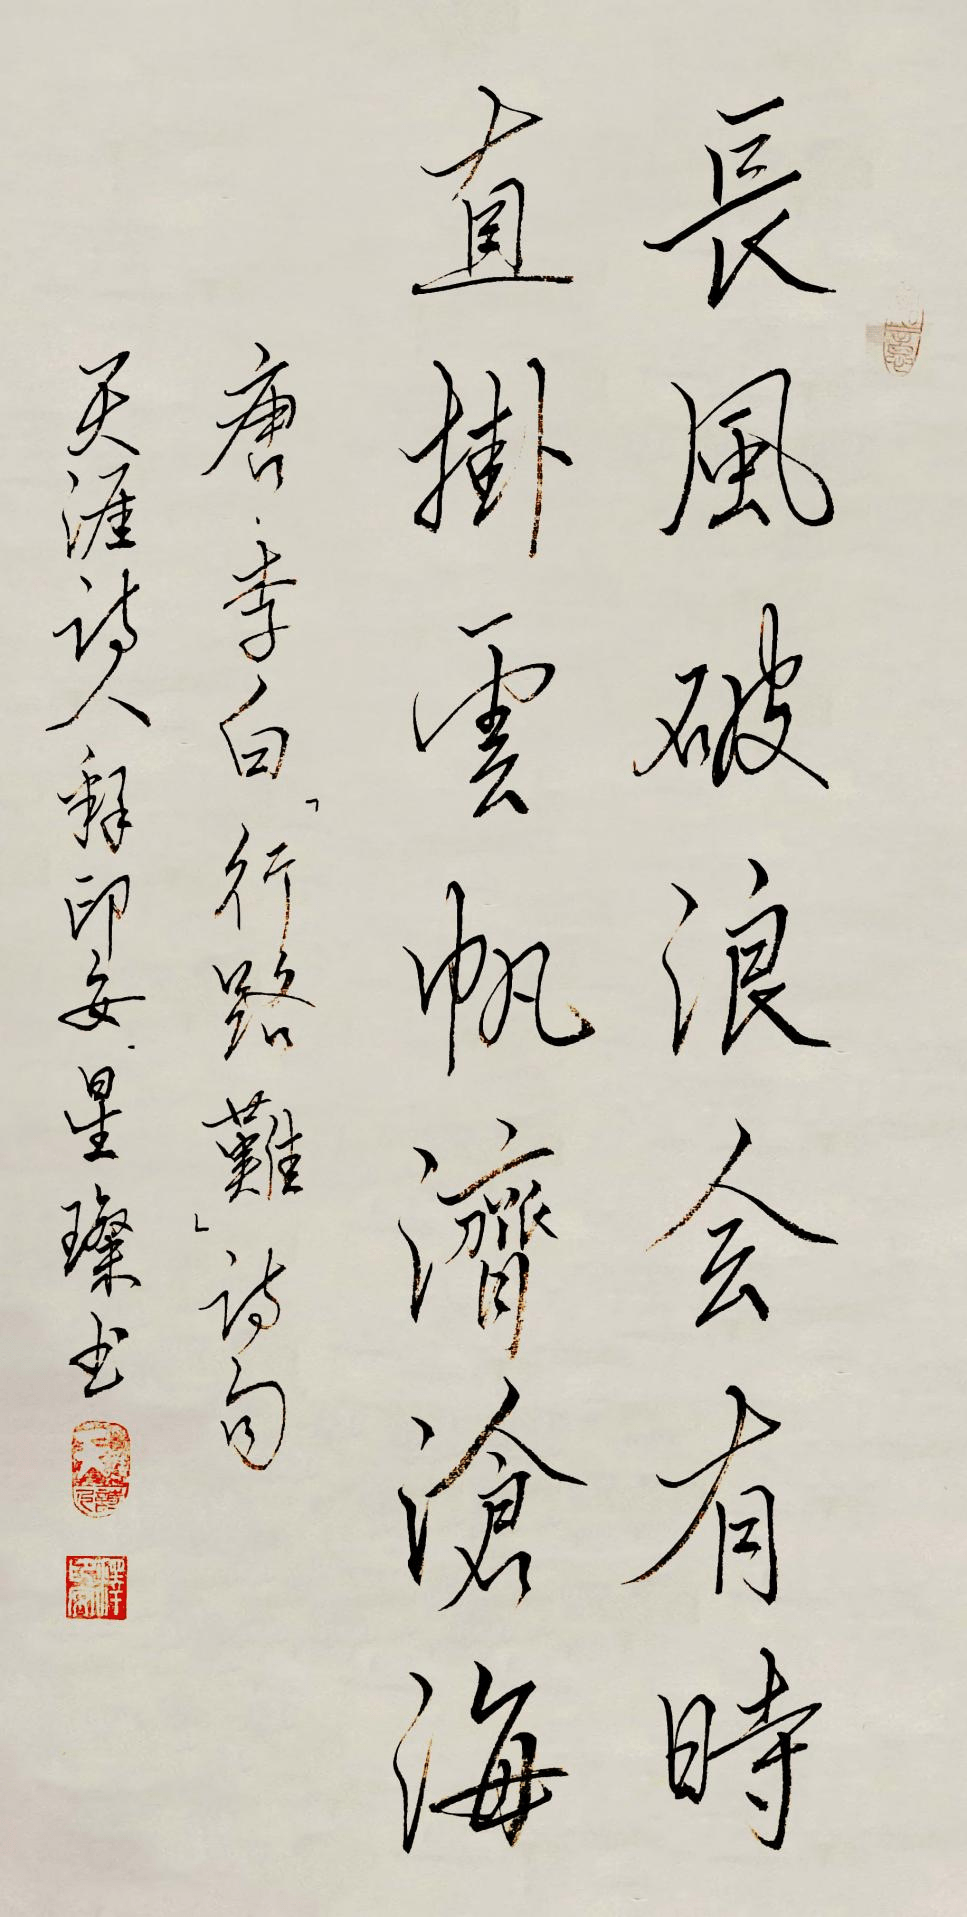 長風破浪会有時
直掛雲帆濟滄海
唐·李白「行路難」詩句
天涯詩人釋印安·星璨书